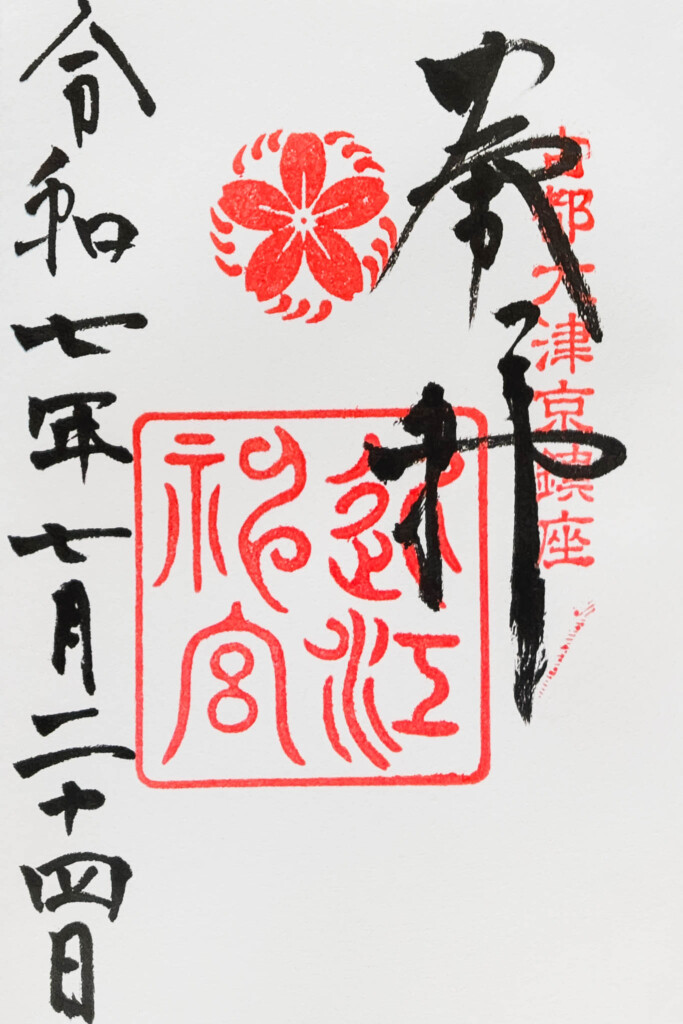 奉拝
古都大津京鎮座
近江
神宮
令和七年七月二十四日